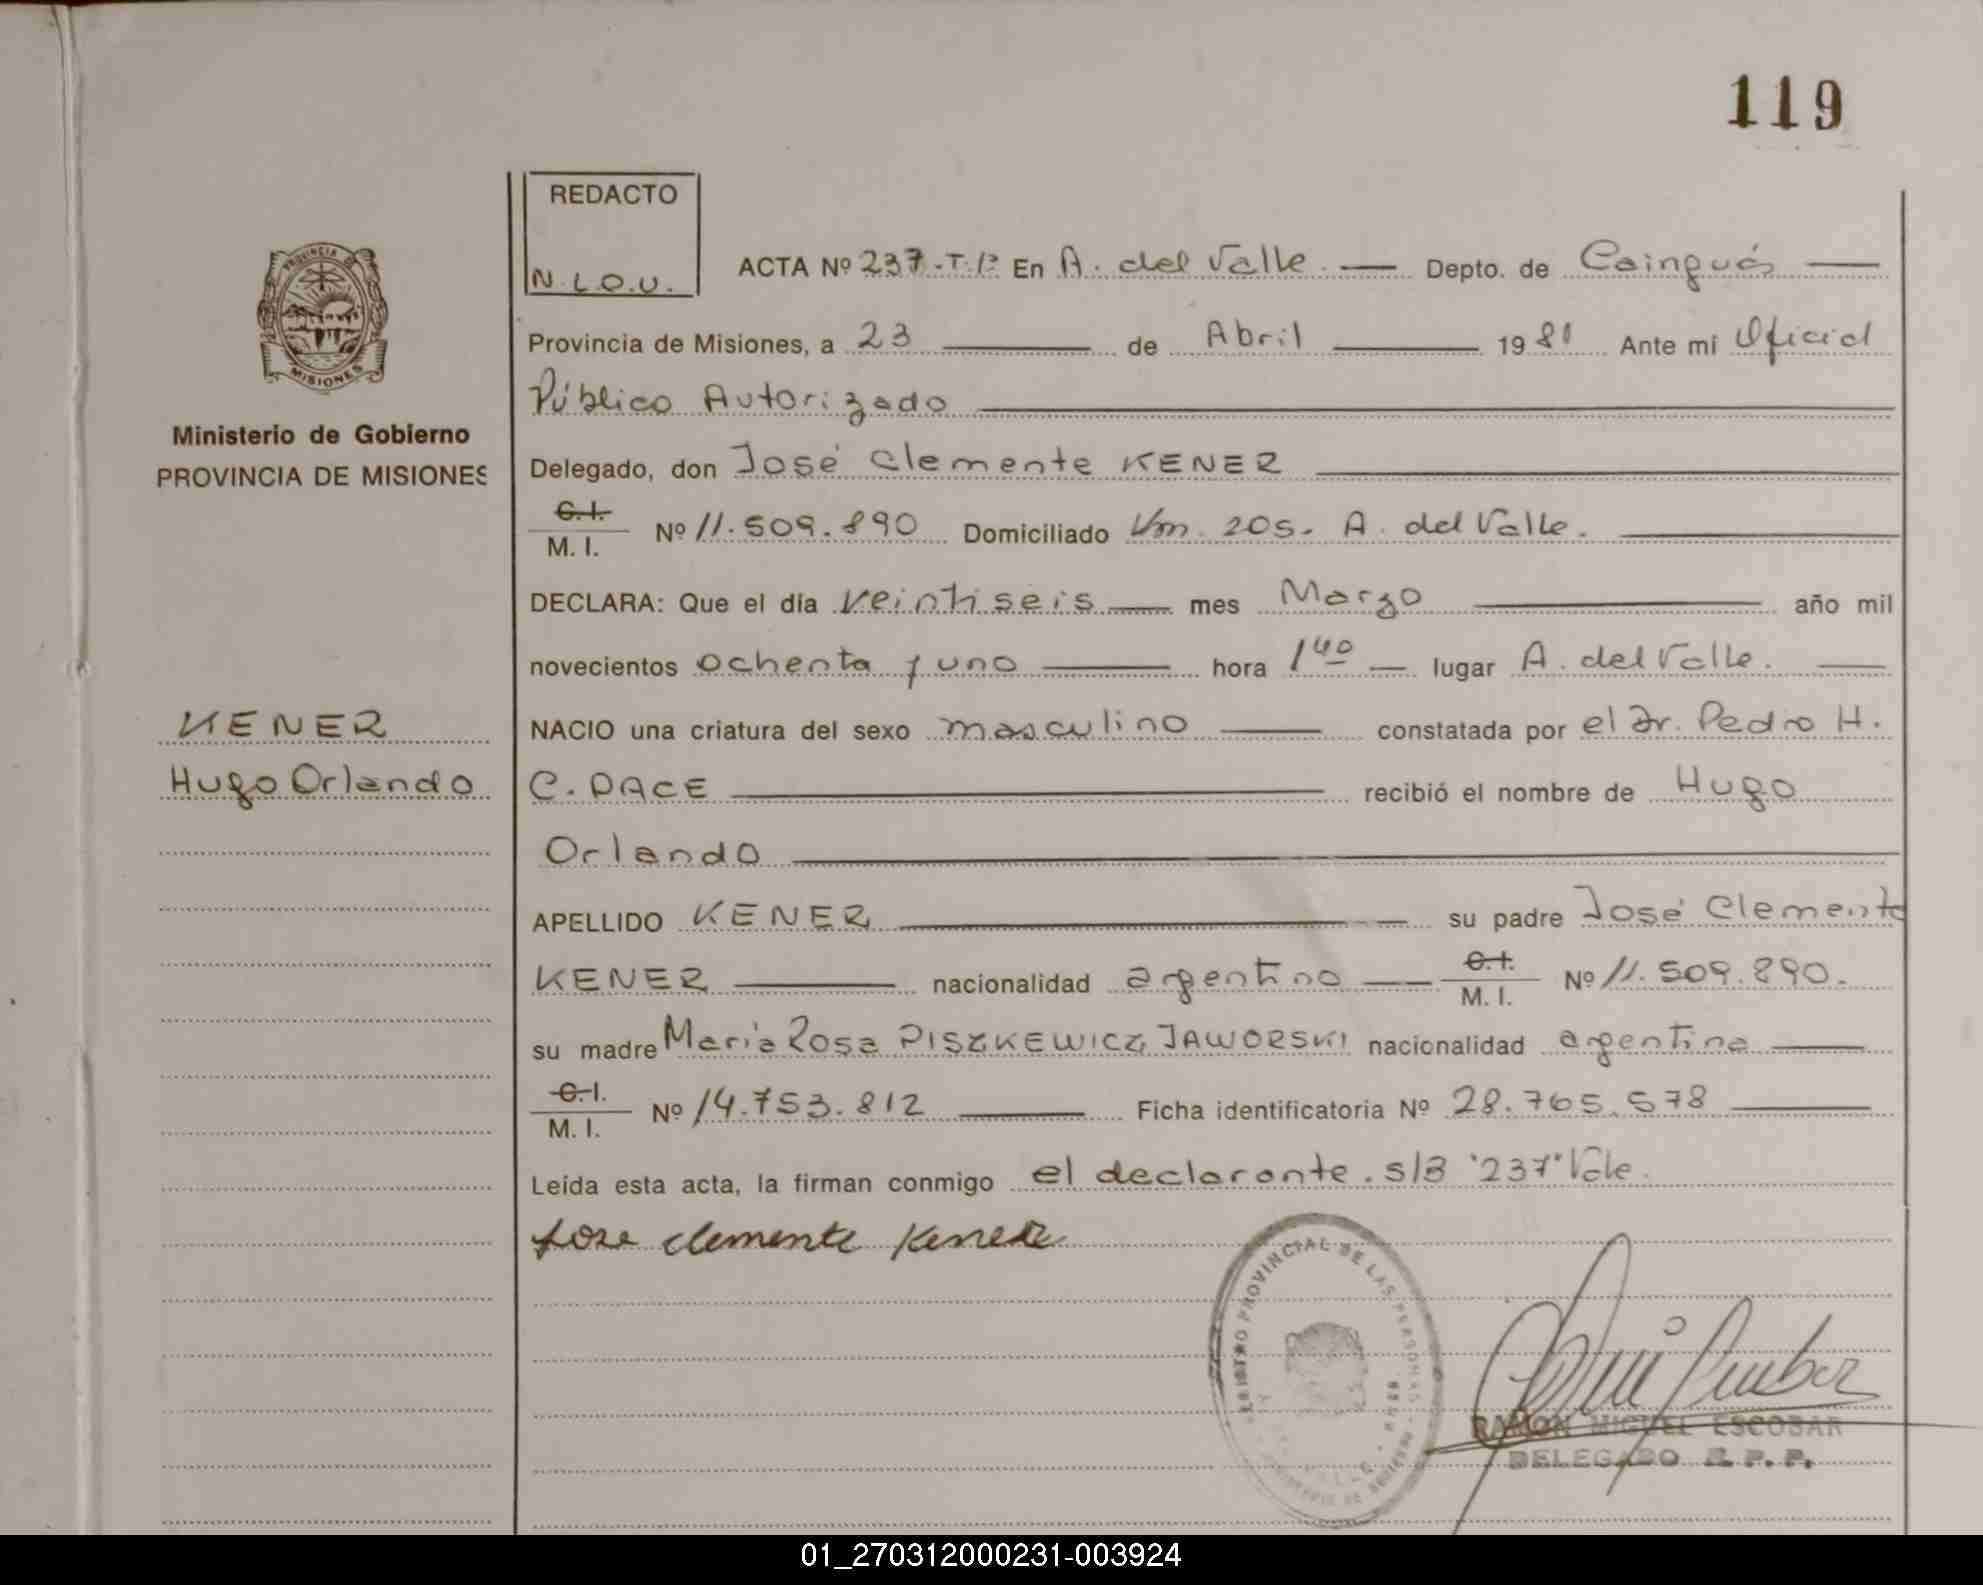 119
REDACTO
N.L.O.U.
ACTA Nº 237-T.1º En A. del Valle. Depto. de Cainguás
Provincia de Misiones, a 23 de Abril 1981 Ante mi Oficial
Público Autorizado
Delegado, don José Clemente KENER
C.I. M.I. Nº 11.509.890 Domiciliado Km. 205. A. del Valle.
DECLARA: Que el día veintiseis mes Marzo año mil
novecientos ochenta y uno hora 1 40 lugar A. del Valle.
NACIO una criatura del sexo masculino constatada por el Dr. Pedro H.
C. PACE recibió el nombre de Hugo
Orlando
APELLIDO KENER su padre José Clemente
KENER nacionalidad argentino C.I. M.I. Nº 11.509.890.
su madre María Rosa PISZKEWICZ JAWORSKI nacionalidad argentina
C.I. M.I. Nº 14.753.812 Ficha identificatoria Nº 28.765.578
Leída esta acta, la firman conmigo el declarante. s/B "237" Vale.
Jose Clemente Kener
PROVINCIA DE
MISIONES
Ministerio de Gobierno
PROVINCIA DE MISIONES
KENER
Hugo Orlando
REGISTRO PROVINCIAL DE LAS PERSONAS
RAMON MIGUEL ESCOBAR
DELEGADO R.P.P.
01_270312000231-003924